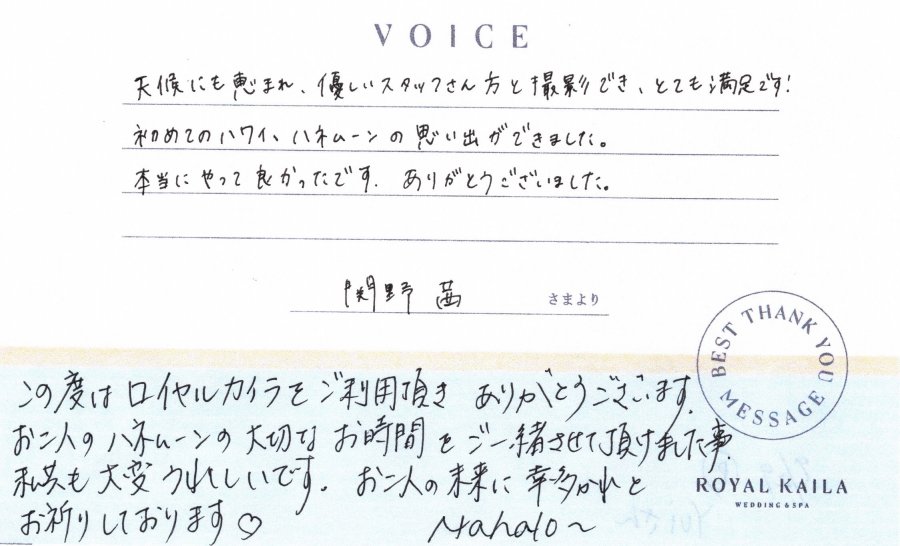 VOICE
天候にも恵まれ、優しいスタッフさん方と撮影でき、とても満足です!
初めてのハワイ、ハネムーンの思い出ができました。
本当にやって良かったです. ありがとうございました。
関野 茜 さまより
BEST THANK YOU MESSAGE
この度はロイヤルカイラをご利用頂き ありがとうございます.
お二人のハネムーンの大切なお時間をご一緒させて頂けました事
私共も大変うれしいです. お二人の未来に幸多かれと
ROYAL KAILA
WEDDING & SPA
お祈りしております♡ Mahalo~